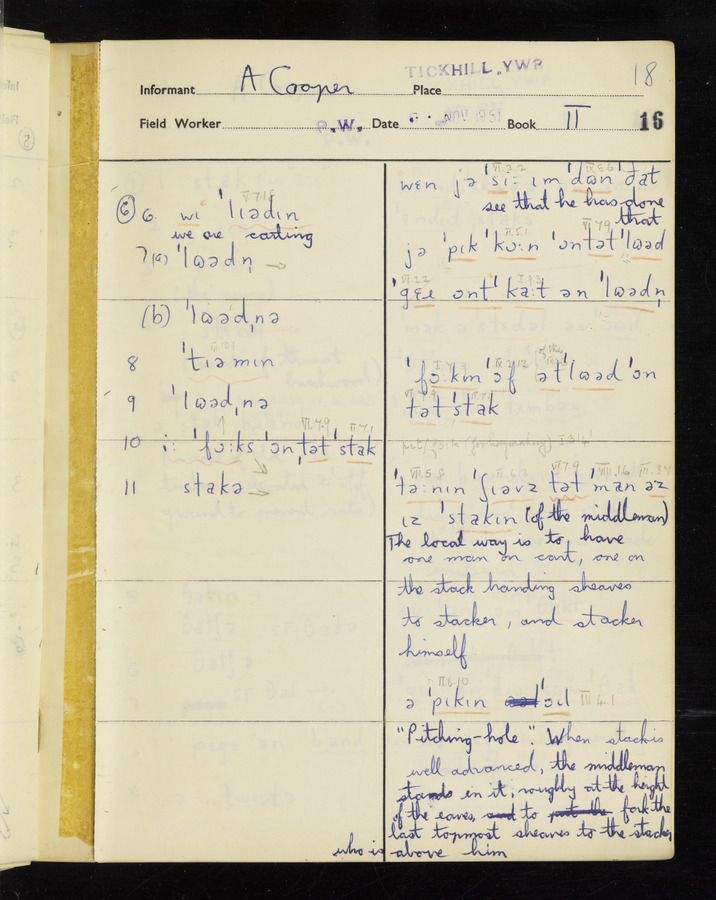 TICKHILL, YWR
18
Informant A Cooper Place
Field Worker P.W. Date NOV 1951 Book II 16
⑥ 6. wi ˈlɪədɪn
V.7.1
we are carting
7(a) ˈlɷədn̩ →
(b) ˈlɷədnə
8 ˈtɪəmɪn
9 ˈlɷədˌnə
10 i: ˈfɔ:ks ˈɔnˌtətˈstak
II.7.9 II.7.1
11 stakə →
wen jə ˈsi: ɪm ˈdɷn ðat
VI.3.2
see that he has done
that
jə ˈpɪk ˈkʊ:n ˈɔntətˈlɷəd
ˈgɛɛ ɔntˈ ka:t ən ˈlɷədn̩
ˈfɔ:kɪn ˈɔf ətˈlɷəd ˈɔn
tətˈstak
ˈtə:nɪn ˈʃɪəvz tətˈman əz
ɪz ˈstakɪn (of the middleman)
The local way is to have
one man on cart, one on
the stack handing sheaves
to stacker, and stacker
himself
ə ˈpɪkɪn ˈɔɪl
"Pitching-hole". When stack is
well advanced, the middleman
stands in it, roughly at the height
of the eaves, and to put the fork the
last topmost sheaves to the stacker
who is above him